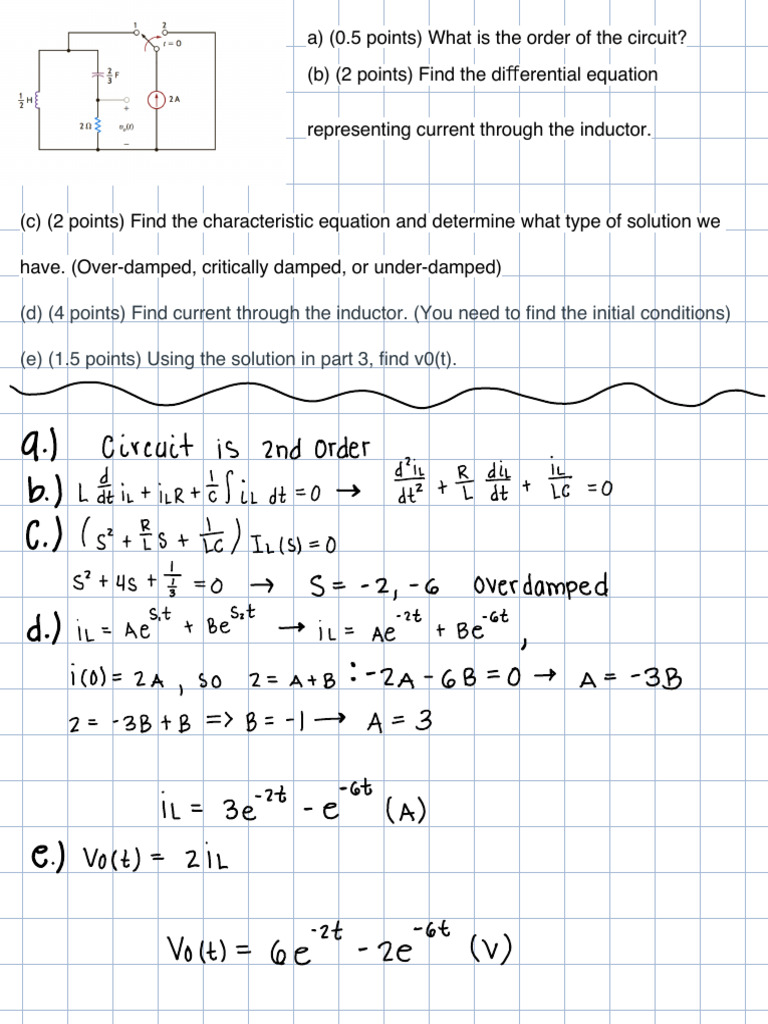 1 2
t = 0
2/3 F
1/2 H
+
2 A
2 Ω
v₀(t)
−
a) (0.5 points) What is the order of the circuit?
(b) (2 points) Find the differential equation
representing current through the inductor.
(c) (2 points) Find the characteristic equation and determine what type of solution we
have. (Over-damped, critically damped, or under-damped)
(d) (4 points) Find current through the inductor. (You need to find the initial conditions)
(e) (1.5 points) Using the solution in part 3, find v0(t).
a.) Circuit is 2nd order
b.) L d/dt iL + iLR + 1/C ∫ iL dt = 0 → d²iL/dt² + R/L diL/dt + iL/LC = 0
C.) (s² + R/L s + 1/LC) IL(s) = 0
s² + 4s + 1/(1/3) = 0 → S = -2, -6 overdamped
d.) iL = Ae^(s₁t) + Be^(s₂t) → iL = Ae^(-2t) + Be^(-6t),
i(0) = 2A, so 2 = A+B : -2A - 6B = 0 → A = -3B
2 = -3B + B => B = -1 → A = 3
iL = 3e^(-2t) - e^(-6t) (A)
e.) Vo(t) = 2iL
Vo(t) = 6e^(-2t) - 2e^(-6t) (V)